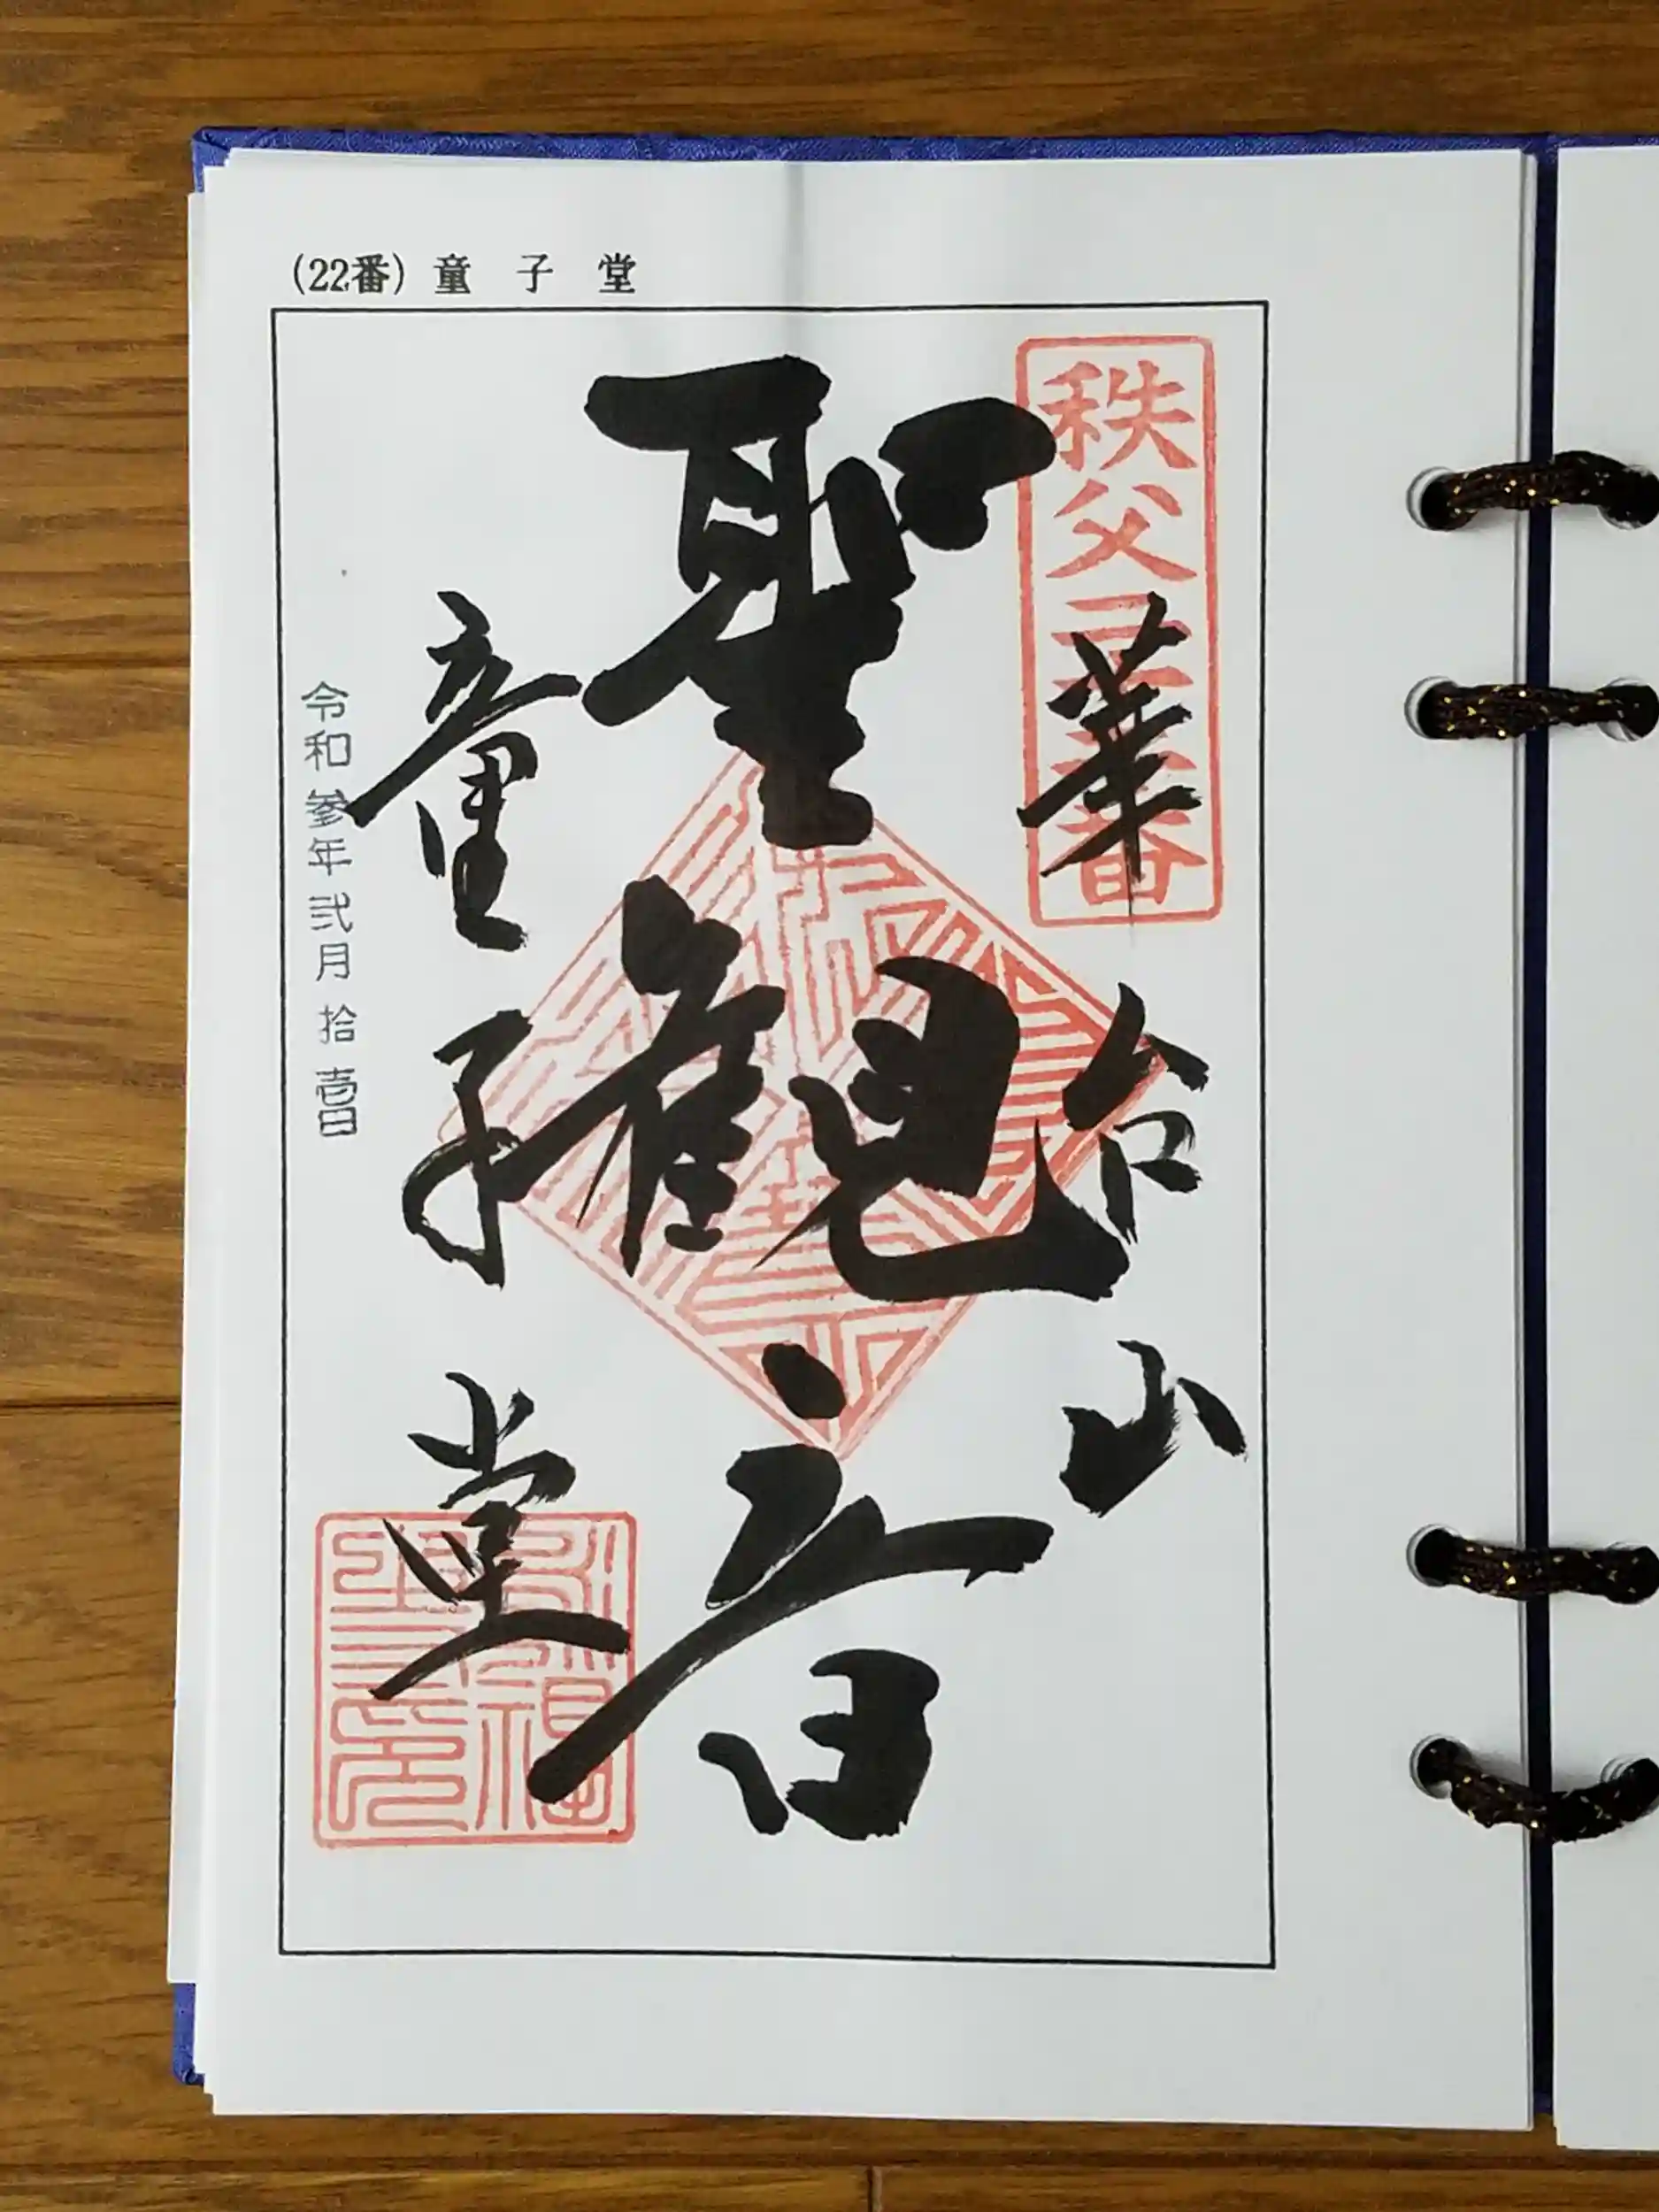 (22番) 童子堂
秩父二十二番
華台山
聖観音
童子堂
令和参年弐月拾壱日